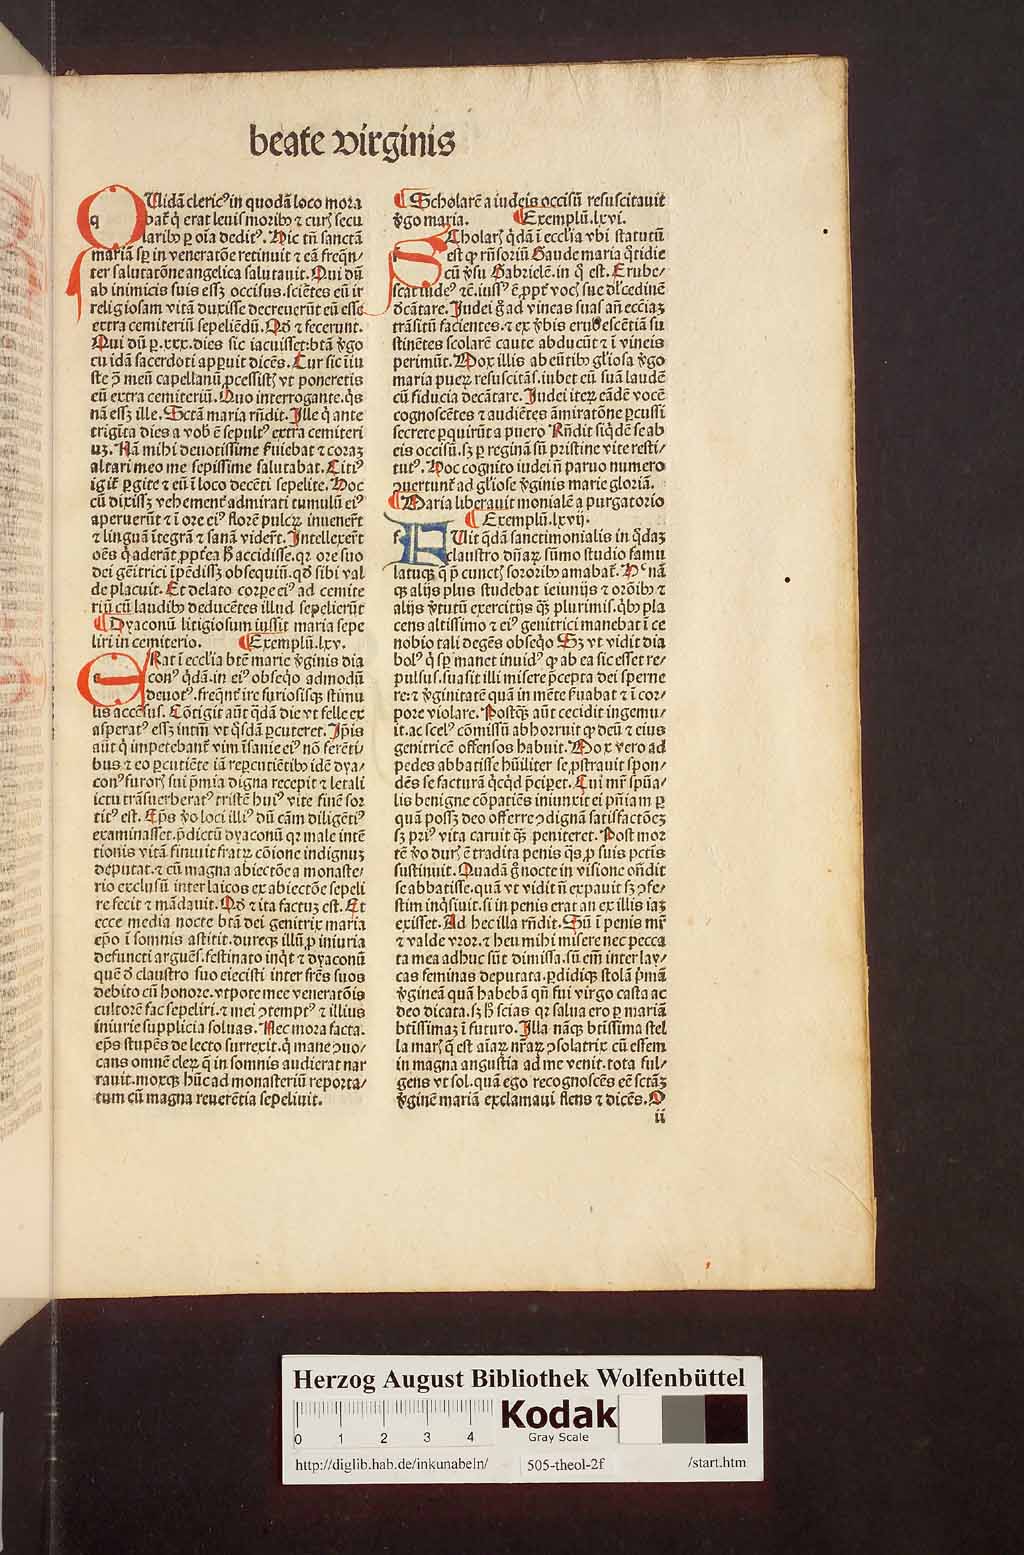 beate virginis
QUidā cleric⁹ in quodā loco mora
bat̄ q̇ erat leuis moribꝰ ⁊ curꝭ secu
laribꝰ ꝑ oīa dedit⁹. Hic tn̄ sanctā
mariā sꝑ in veneratōe retinuit ⁊ eā freq̄n⸗
ter salutatōne angelica salutauit. Qui dū
ab inimicis suis essꝫ occisus. sciētes eū ir
religiosam vitā duxisse decreuerūt eū esse
extra cemiteriū sepeliēdū. Qḋ ⁊ fecerunt.
Qui dū ꝑ .xxx. dies sic iacuisset: btā v̄go
cuidā sacerdoti apparuit dicēs. Cur sic īiu
ste ꝯ̄ meū capellanū ꝓcessistꝭ vt poneretis
eū extra cemiteriū. Quo interrogante. q̇s
nā essꝫ ille. Sctā maria rn̄dit. Ille q̇ ante
trigīta dies a vob̄ ē sepult⁹ extra cemiteri
uꝫ. Nā mihi deuotissime ẜuiebat ⁊ coraꝫ
altari meo me sepissime salutabat. Citi⁹
igit̄ ꝑgite ⁊ eū ī loco decēti sepelite. Hoc
cū dixissꝫ vehement̄ admirati tumulū ei⁹
aperuerūt ⁊ ī ore ei⁹ florē pulcꝝ inuener̄t
⁊ linguā ītegrā ⁊ sanā vider̄t. Intellexer̄t
oēs q̇ aderāt ꝓpt̄ea h̄ accidisse. qꝛ ore suo
dei gēitrici īpēdissꝫ obsequiū. qḋ sibi val
de placuit. Et delato corꝑe ei⁹ ad cemite
riū cū laudibꝰ deducētes illud sepelierūt
¶ Dyaconū litigiosum iussit maria sepe
liri in cemiterio. ¶ Exemplū .lxv.
ERat ī eccl̄ia btē marie v̄ginis dia
con⁹ q̇dā. in ei⁹ obseq̇o admodū
deuot⁹. freq̄nt̄ ire furiosisqꝫ stimu
lis accēsus. Cōtigit aūt q̇dā die vt felle ex
asperat⁹ essꝫ intm̄ vt q̇sdā ꝑcuteret. Ip̄is
aūt q̇ impetebant̄ vim īsanie ei⁹ nō ferēti⸗
bus ⁊ eo ꝑcutiēte iā reꝑcutiētibꝰ idē dya⸗
con⁹ furorꝭ sui p̄mia digna recepit ⁊ letali
ictu trāsuerberat⁹ tristē hui⁹ vite finē sor
tit⁹ est. Ep̄s v̇o loci illi⁹ dū cām diligēti⁹
examinasset. p̄dictū dyaconū qꝛ male intē
tionis vitā finiuit fratꝝ cōione indignuꝫ
deputat. ⁊ cū magna abiectōe a monaste⸗
rio exclusū inter laicos ex abiectōe sepeli
re fecit ⁊ mādauit. Qḋ ⁊ ita factuꝫ est. Et
ecce media nocte btā dei genitrix maria
ep̄o ī somnis astitit. dureqꝫ illū ꝓ iniuria
defuncti arguēs. festinato inq̇t ⁊ dyaconū
quē ḋ claustro suo eiecisti inter fr̄es suos
debito cū honore. vtpote mee veneratōis
cultorē fac sepeliri. ⁊ mei ꝯtempt⁹ ⁊ illius
iniurie supplicia soluas. Nec mora facta.
ep̄s stupēs de lecto surrexit. q̇ mane ꝯuo⸗
cans omnē cleꝝ q̄ in somnis audierat nar
rauit. moxqꝫ hūc ad monasteriū reporta⸗
tum cū magna reuerētia sepeliuit.
¶ Scholarē a iudeis occisū resuscitauit
v̄go maria. ¶ Exemplū .lxvi.
SCholarꝭ q̇dā ī eccl̄ia vbi statutū
est ꝙ rn̄soriū Gaude maria q̇tidie
cū v̄su Gabrielē. in q̇ est. Erube⸗
scat iude⁹ ⁊c̄. iuss⁹ ē ꝓpt̄ vocꝭ sue dl̄cedinē
ḋcātare. Iudei g̊ ad vineas suas an̄ ecciaꝫ
trāsitū facientes. ⁊ ex v̄bis erubescētiā su
stinētes scolarē caute abducūt ⁊ ī vineis
perimūt. Mox illis abeūtibꝰ gl̄iosa v̄go
maria pueꝝ resuscitās. iubet eū suā laudē
cū fiducia decātare. Iudei iteꝝ eādē vocē
cognoscētes ⁊ audiētes āmiratōne ꝑcussi
secrete ꝑquirūt a puero Rn̄dit siq̇dē se ab
eis occisū. sꝫ ꝑ reginā sū pristine vite resti⸗
tut⁹. Hoc cognito iudei n̄ paruo numero
ꝯuertunt̄ ad gl̄iose v̄ginis marie gloriā.
¶ Maria liberauit monialē a purgatorio
¶ Exemplū .lxvij.
FUit q̇dā sanctimonialis in q̇daꝫ
claustro dn̄aꝝ sūmo studio famu
latuqꝫ q̄ p̄ cunctꝭ sororibꝰ amabat̄. Hᶜ nā
qꝫ alijs plus studebat ieiunijs ⁊ orōibꝰ ⁊
alijs v̄tutū exercitijs qꝫ̄ plurimis. q̇bꝰ pla
cens altissimo ⁊ ei⁹ genitrici manebat ī ce
nobio tali degēs obseq̇o Sꝫ vt vidit dia
bol⁹ q̇ sꝑ manet inuid⁹ ꝙ ab ea sic esset re⸗
pulsus. suasit illi misere p̄cepta dei sperne
re: ⁊ v̄ginitatē quā in mēte ẜuabat ⁊ ī cor⸗
pore violare. Postqꝫ̄ aūt cecidit ingemu⸗
it. ac scel⁹ cōmissū abhorruit ꝙ deū ⁊ eius
genitricē offensos habuit. Mox vero ad
pedes abbatisse hūiliter se ꝓstrauit spon⸗
dēs se facturā q̇cq̇d p̄ciꝑet. Cui mr̄ spūa⸗
lis benigne cōpatiēs iniunxit ei pn̄iam ꝑ
quā possꝫ deo offerre ꝯdignā satisfactōeꝫ
sꝫ pri⁹ vita caruit qꝫ̄ peniteret. Post mor
tē v̇o durꝭ ē tradita penis q̇s ꝓ suis pctīs
sustinuit. Quadā g̊ nocte in visione on̄dit
se abbatisse. quā vt vidit n̄ expauit sꝫ ꝯfe⸗
stim inq̇siuit. si in penis erat an ex illis iaꝫ
exisset. Ad hec illa rn̄dit. Sū ī penis mr̄
⁊ valde vror. ⁊ heu mihi misere nec pecca
ta mea adhuc sūt dimissa. sū em̄ inter lay⸗
cas feminas deputata. ꝑdidiqꝫ stolā p̄mā
v̄gineā quā habebā qn̄ fui virgo casta ac
deo dicata. sꝫ h̄ scias qꝛ salua ero ꝑ mariā
btīssimaꝫ ī futuro. Illa nāqꝫ btīssima stel
la marꝭ q̄ est aīaꝝ nr̄aꝝ ꝯsolatrix cū essem
in magna angustia ad me venit. tota ful⸗
gens vt sol. quā ego recognoscēs eē sctāꝫ
v̄ginē mariā exclamaui flens ⁊ dicēs. O
ii
Herzog August Bibliothek Wolfenbüttel
0 1 2 3 4
Kodak
Gray Scale
http://diglib.hab.de/inkunabeln/ 505-theol-2f /start.htm